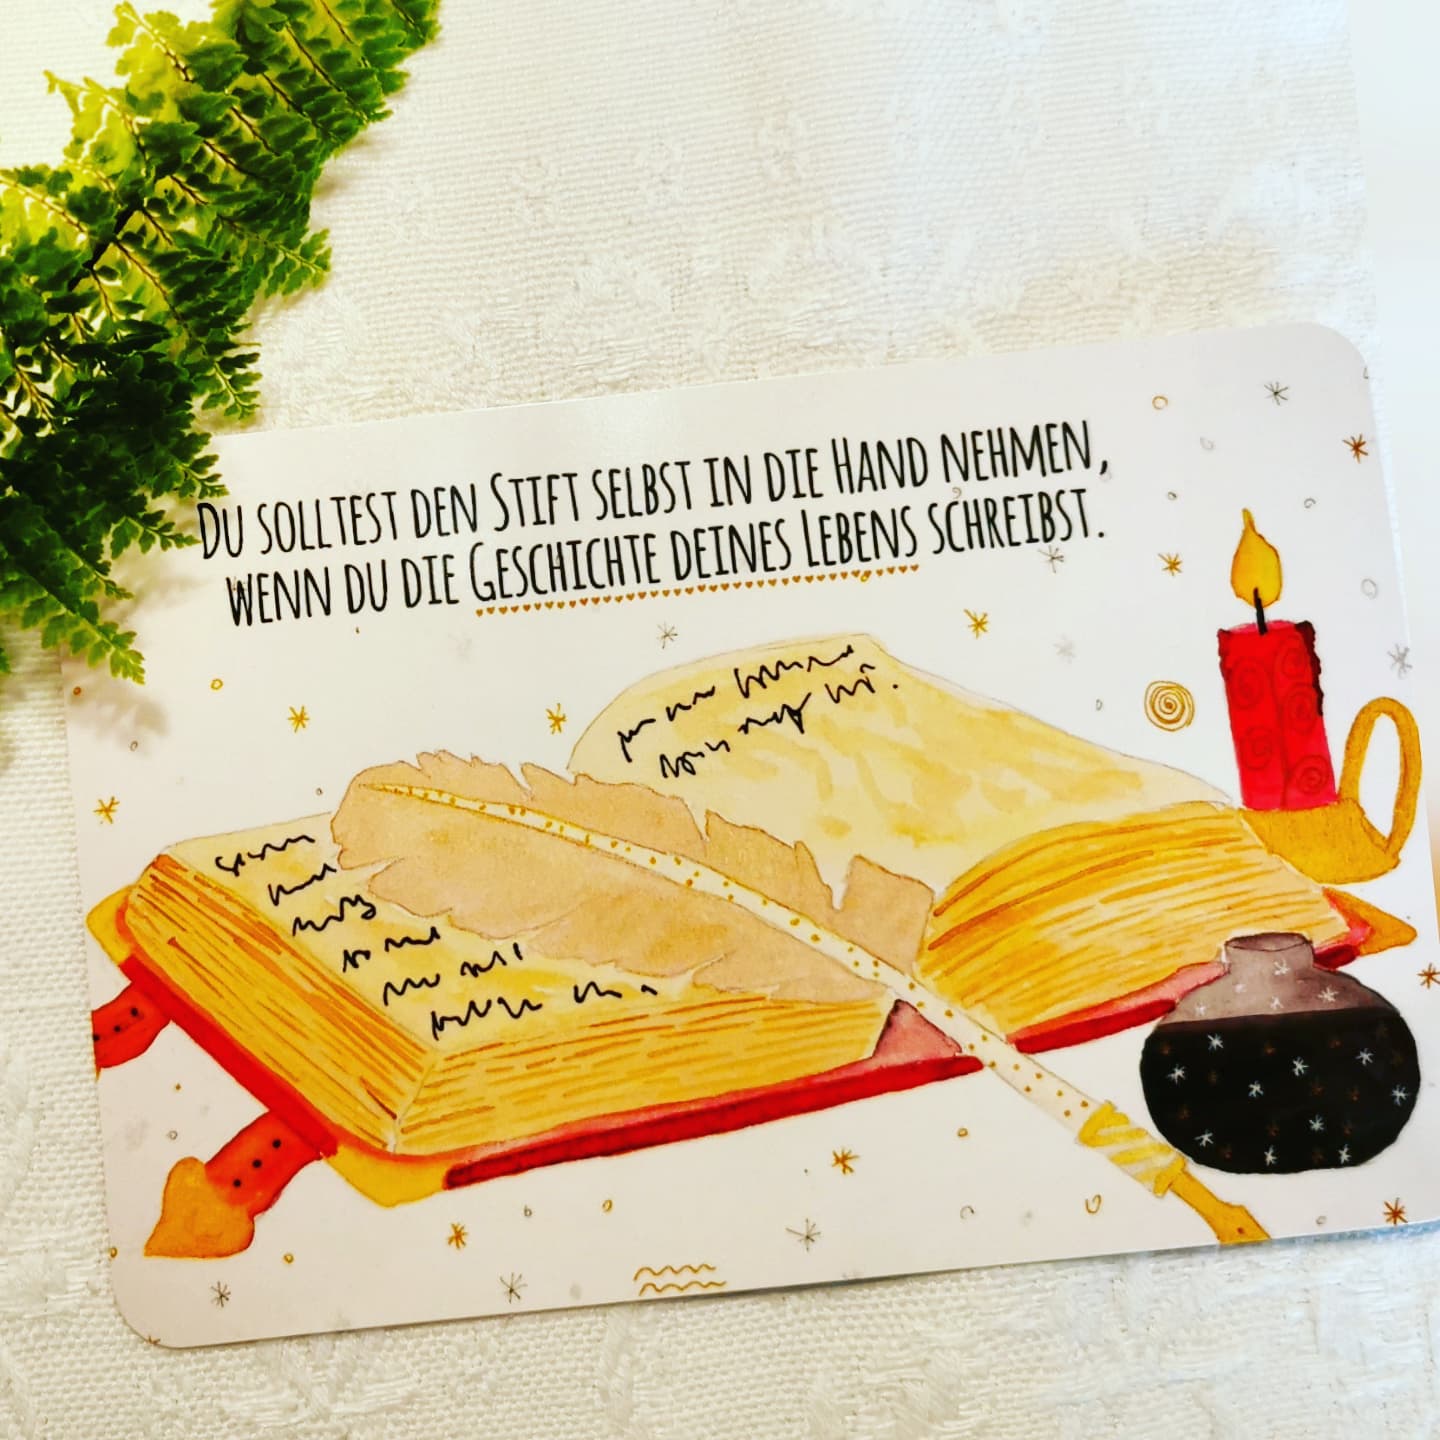 Du solltest den Stift selbst in die Hand nehmen,
wenn du die Geschichte deines Lebens schreibst.